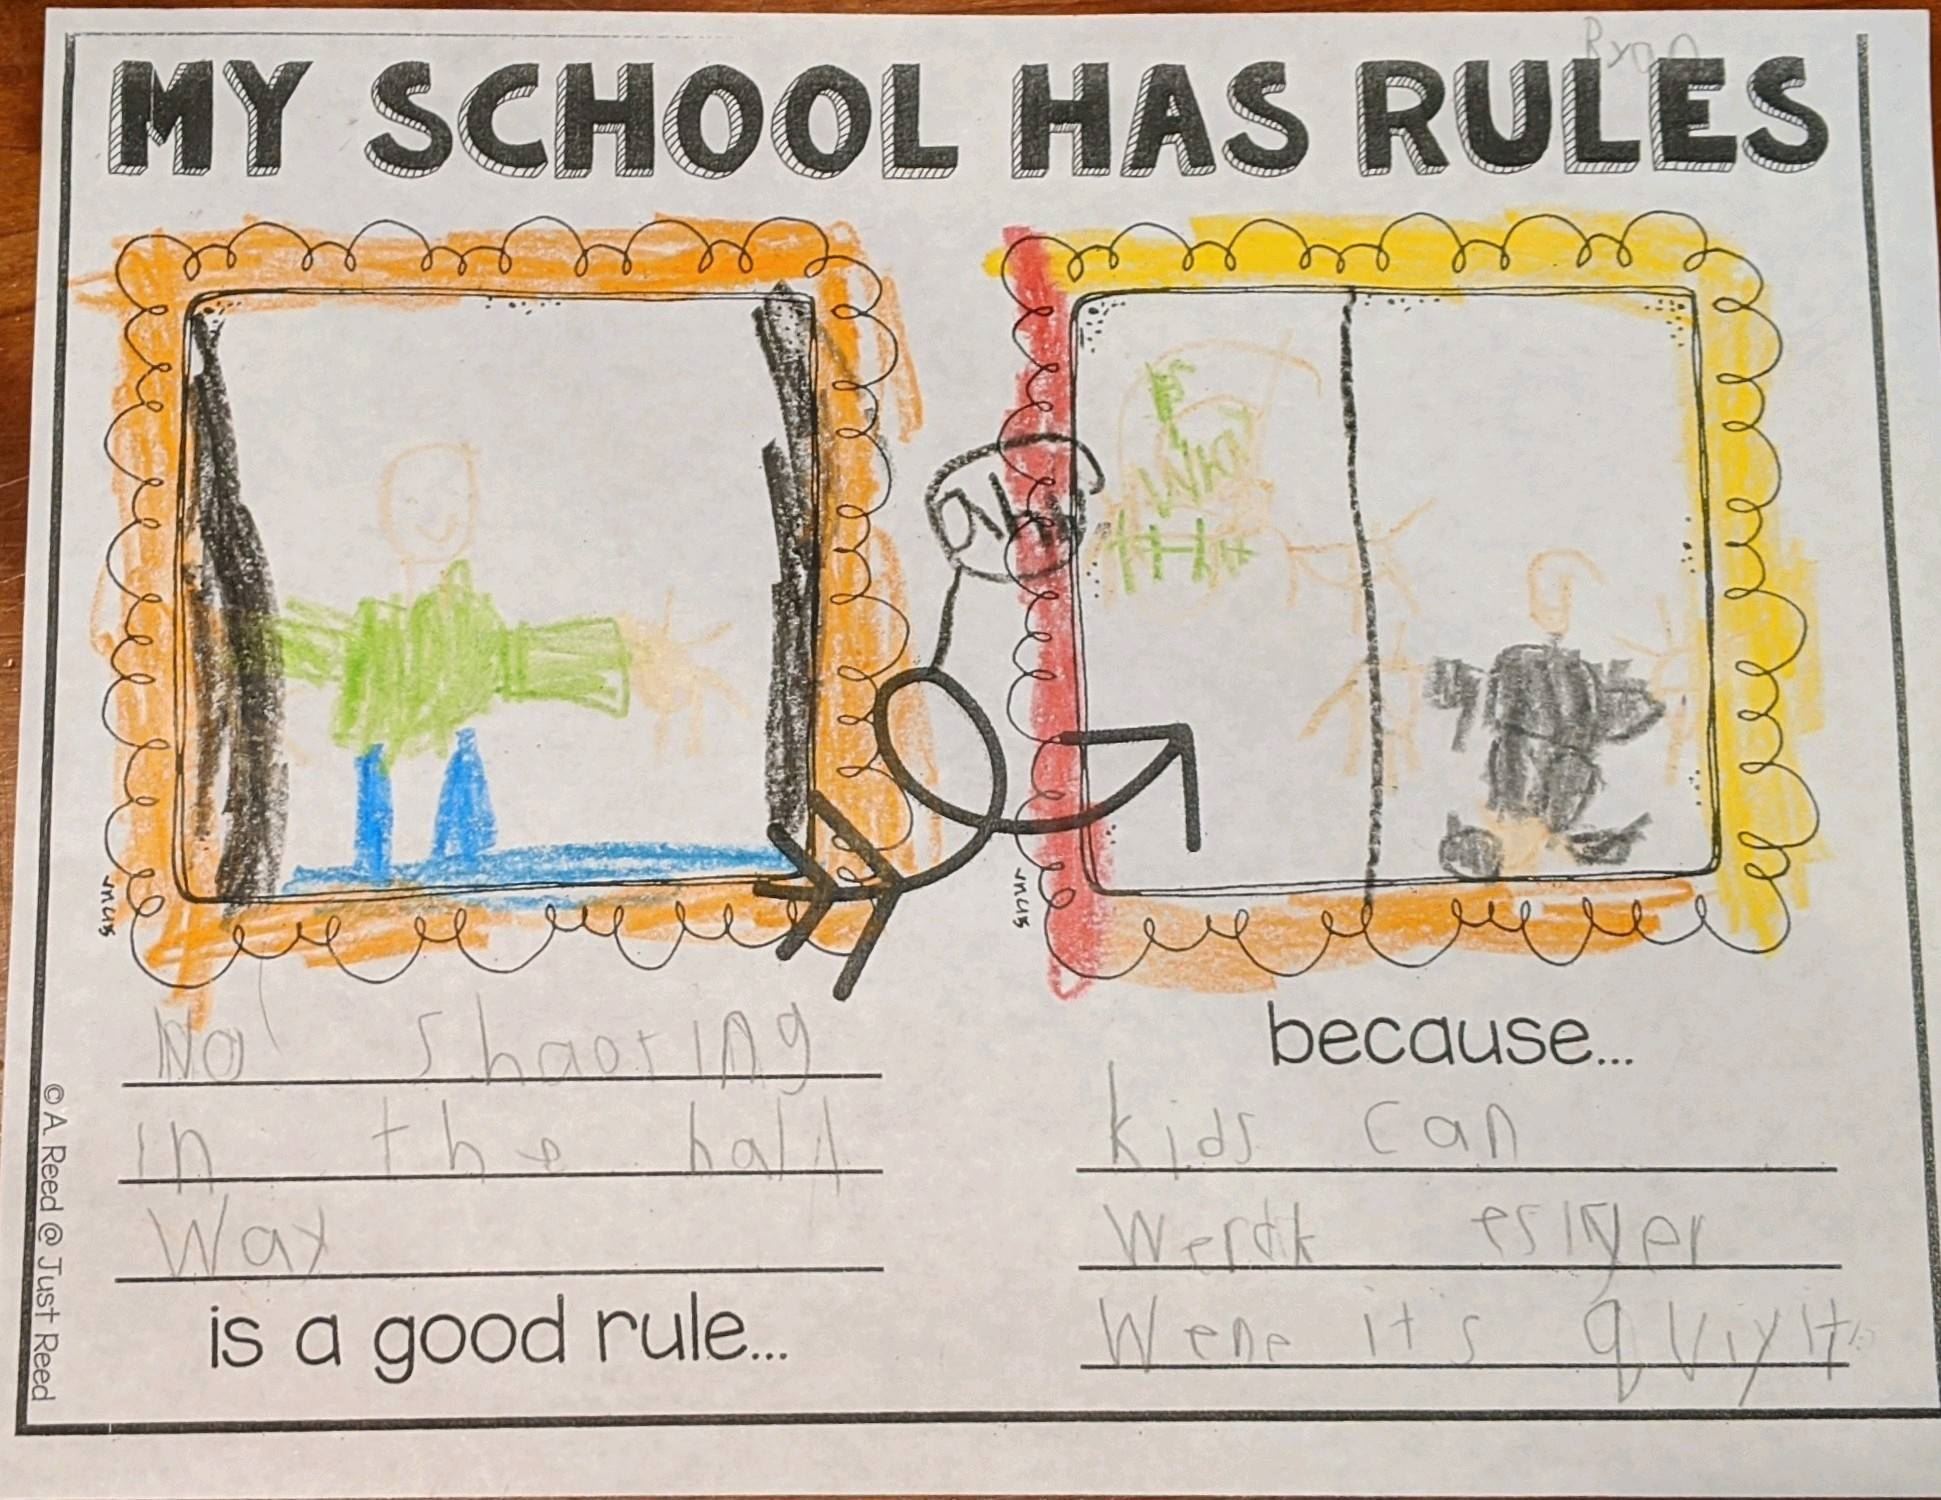 Ryan
MY SCHOOL HAS RULES
What
No shaoting
in the hall
Way
is a good rule...
because...
kids can
Werdk esiyer
Wene it's quiyit
© A Reed @ Just Reed